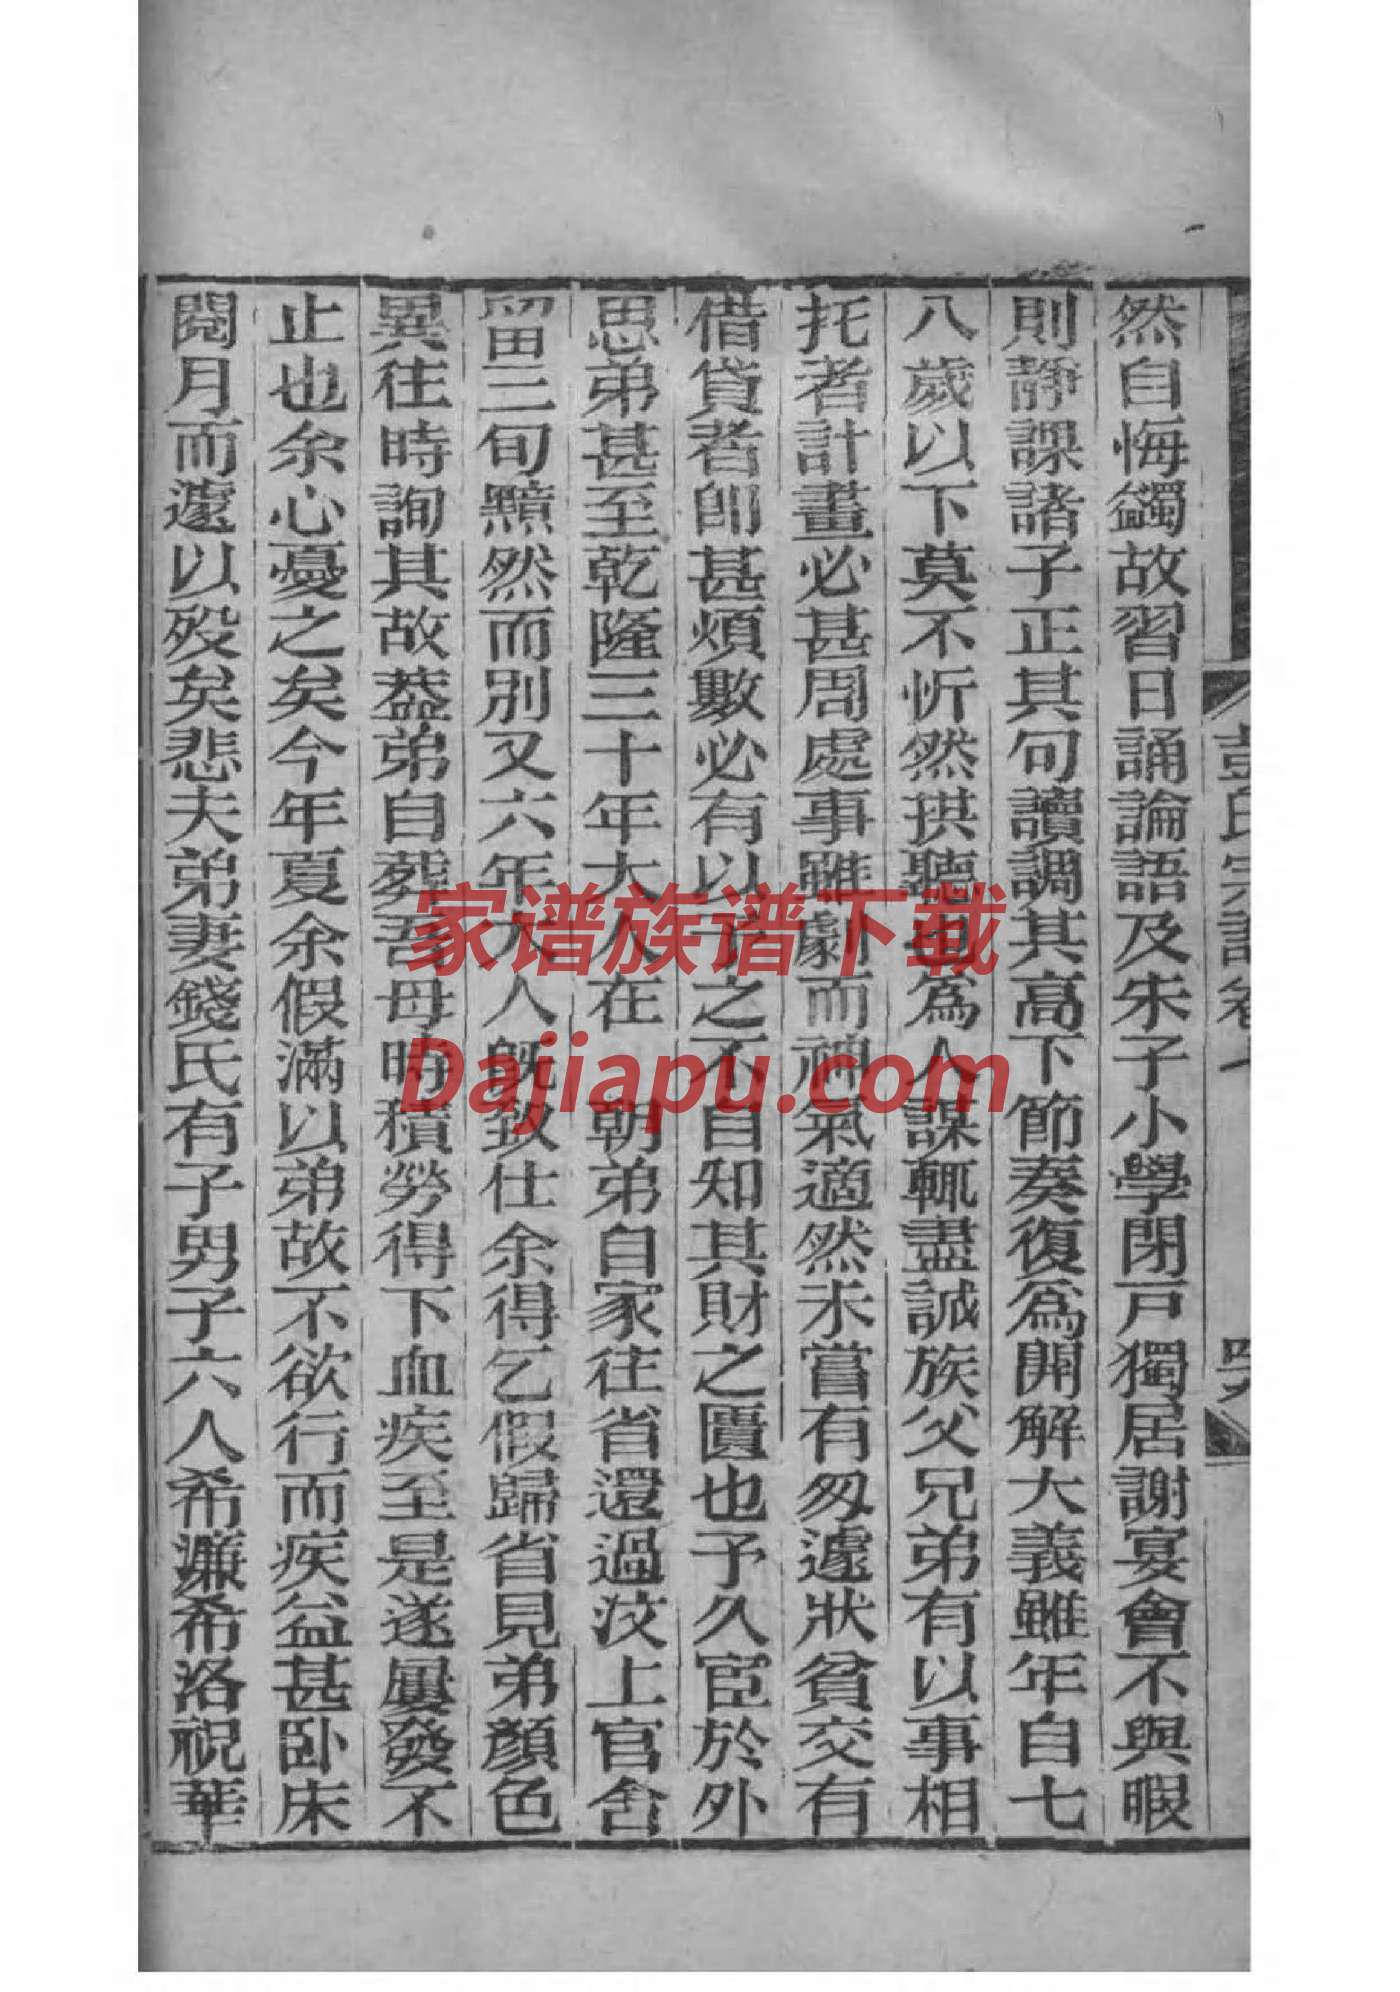 然自悔蠲故習日誦論語及朱子小學閉戸獨居謝宴會不與暇
則靜課諸子正其句讀調其高下節奏復爲開解大義雖年自七
八歲以下莫不忻然拱聽也爲人謀輒盡誠族父兄弟有以事相
托者計畫必甚周處事雖劇而神氣適然未嘗有匆遽狀貧交有
借貸者卽甚煩數必有以予之不自知其財之匱也予久宦於外
思弟甚至乾隆三十年大人在朝弟自家往省還過汶上官舍
留三旬黯然而别又六年大人既致仕余得乞假歸省見弟顏色
異往時詢其故葢弟自葬吾母時積勞得下血疾至是遂屢發不
止也余心憂之矣今年夏余假滿以弟故不欲行而疾益甚卧床
閱月而遽以殁矣悲夫弟妻錢氏有子男子六人希濂希洛祝華
彭氏宗譜卷七
家谱族谱下载
Dajiapu.com